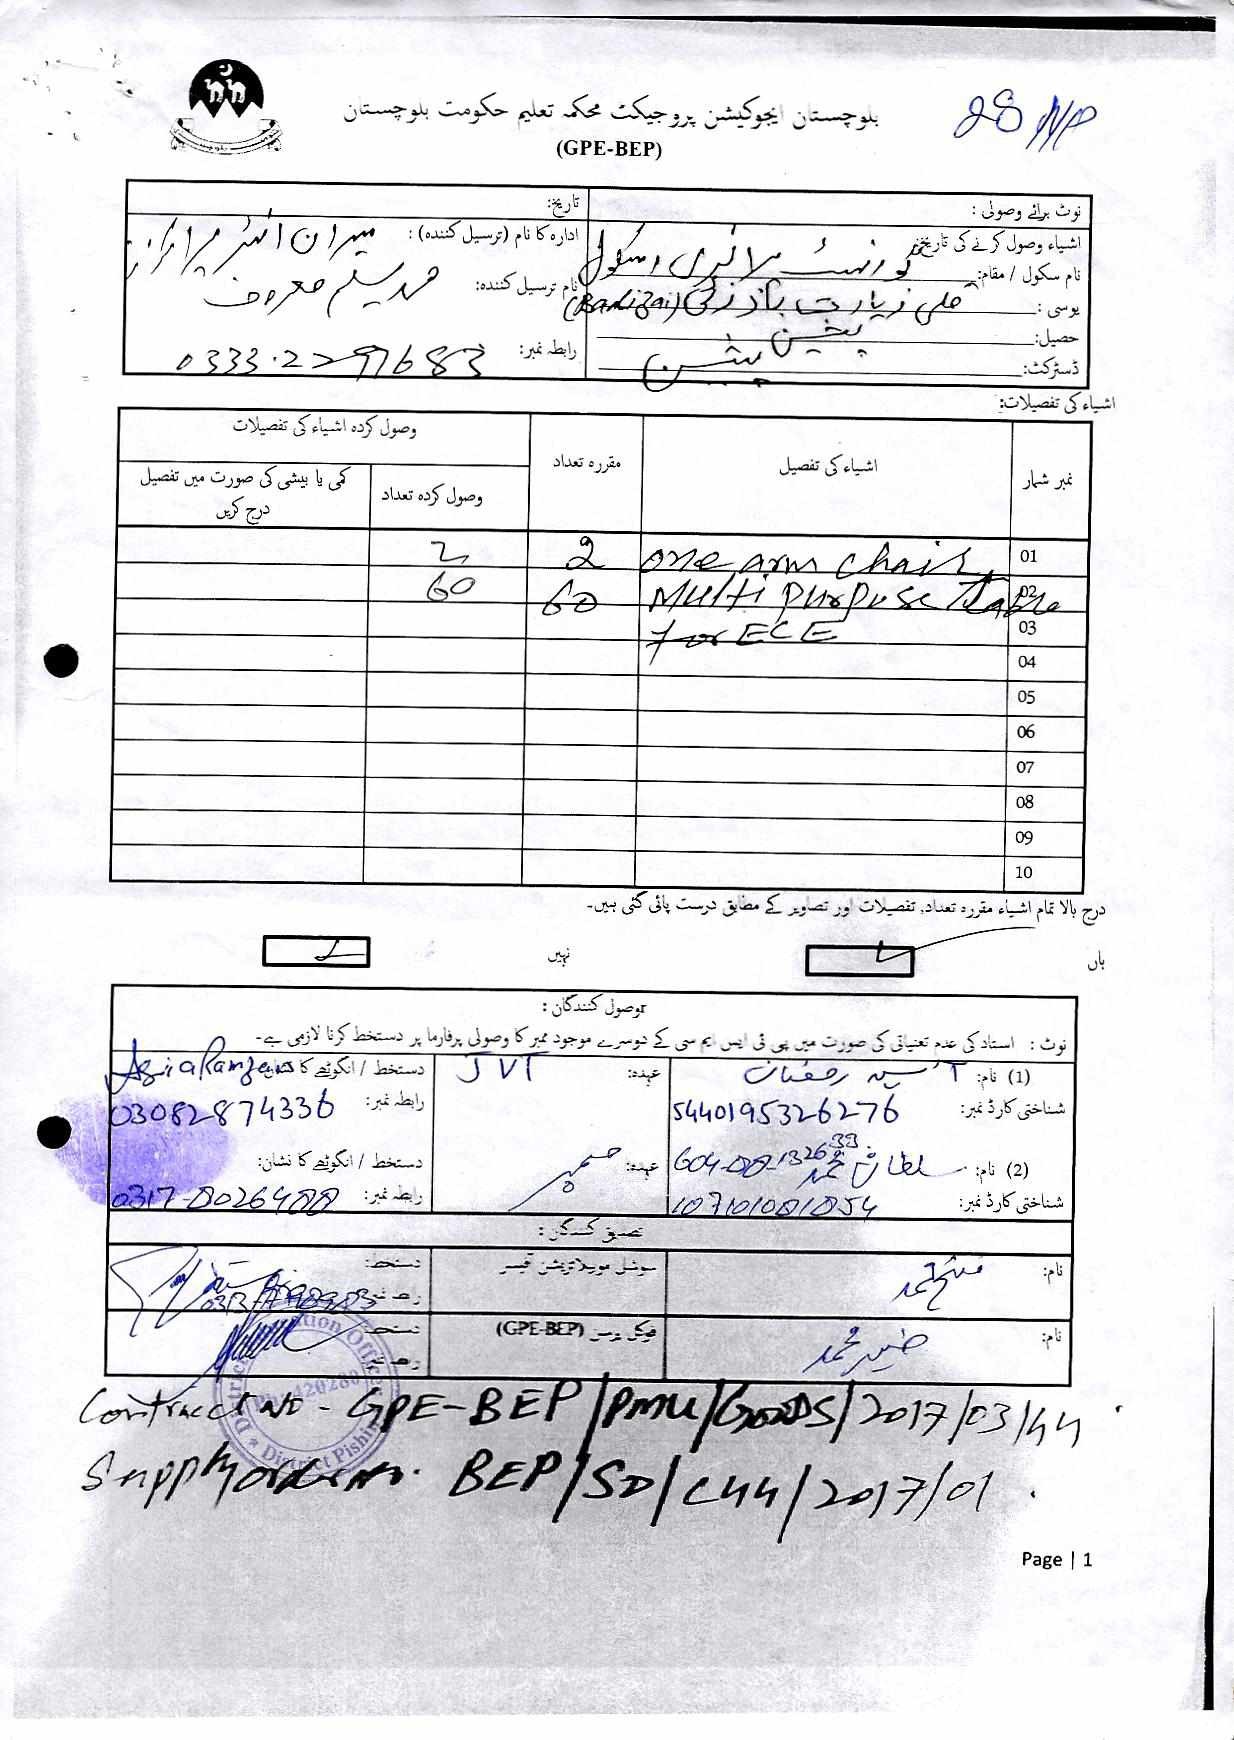 بلوچستان ایجوکیشن پروجیکٹ محکمہ تعلیم حکومت بلوچستان
(GPE-BEP)
28 NP
نوٹ برائے وصولی :
تاریخ:
اشیاء وصول کرنے کی تاریخ:
ادارہ کا نام (ترسیل کنندہ) :
نام سکول / مقام: گورنمنٹ پرائمری اسکول
نام ترسیل کنندہ: محمد سلیم معروف
یوسی : کلی زیارت بادیزئی (Badizai)
حصیل: پشین
رابطہ نمبر: 0333-2297683
ڈسٹرکٹ: پشین
اشیاء کی تفصیلات:
نمبر شمار
اشیاء کی تفصیل
مقررہ تعداد
وصول کردہ اشیاء کی تفصیلات
وصول کردہ تعداد
کمی یا بیشی کی صورت میں تفصیل درج کریں
01 one arm chair 2 2
02 Multi purpose Table 60 60
03 for ECE
04
05
06
07
08
09
10
درج بالا تمام اشیاء مقررہ تعداد، تفصیلات اور تصاویر کے مطابق درست پائی گئی ہیں۔
ہاں
نہیں
وصول کنندگان :
نوٹ : استاد کی عدم تعنیاتی کی صورت میں پی ٹی ایس ایم سی کے دوسرے موجود ممبر کا وصولی پرفارما پر دستخط کرنا لازمی ہے۔
(1) نام: آسیہ رمضان
عہدہ: JVT
دستخط / انگوٹھے کا نشان:
شناختی کارڈ نمبر: 5440195326276
رابطہ نمبر: 03082874336
(2) نام: سلطان محمد
عہدہ: ممبر
دستخط / انگوٹھے کا نشان:
شناختی کارڈ نمبر:
رابطہ نمبر: 0317-8026488
تصدیق کنندگان :
نام:
سوشل موبیلائزیشن آفیسر
دستخط:
نام:
فوکل پرسن (GPE-BEP)
دستخط:
Ph: 420280
District Pishin
Contract No - GPE-BEP/PMU/GOODS/2017/03/44
Supply order No. BEP/SO/C44/2017/01.
Page | 1